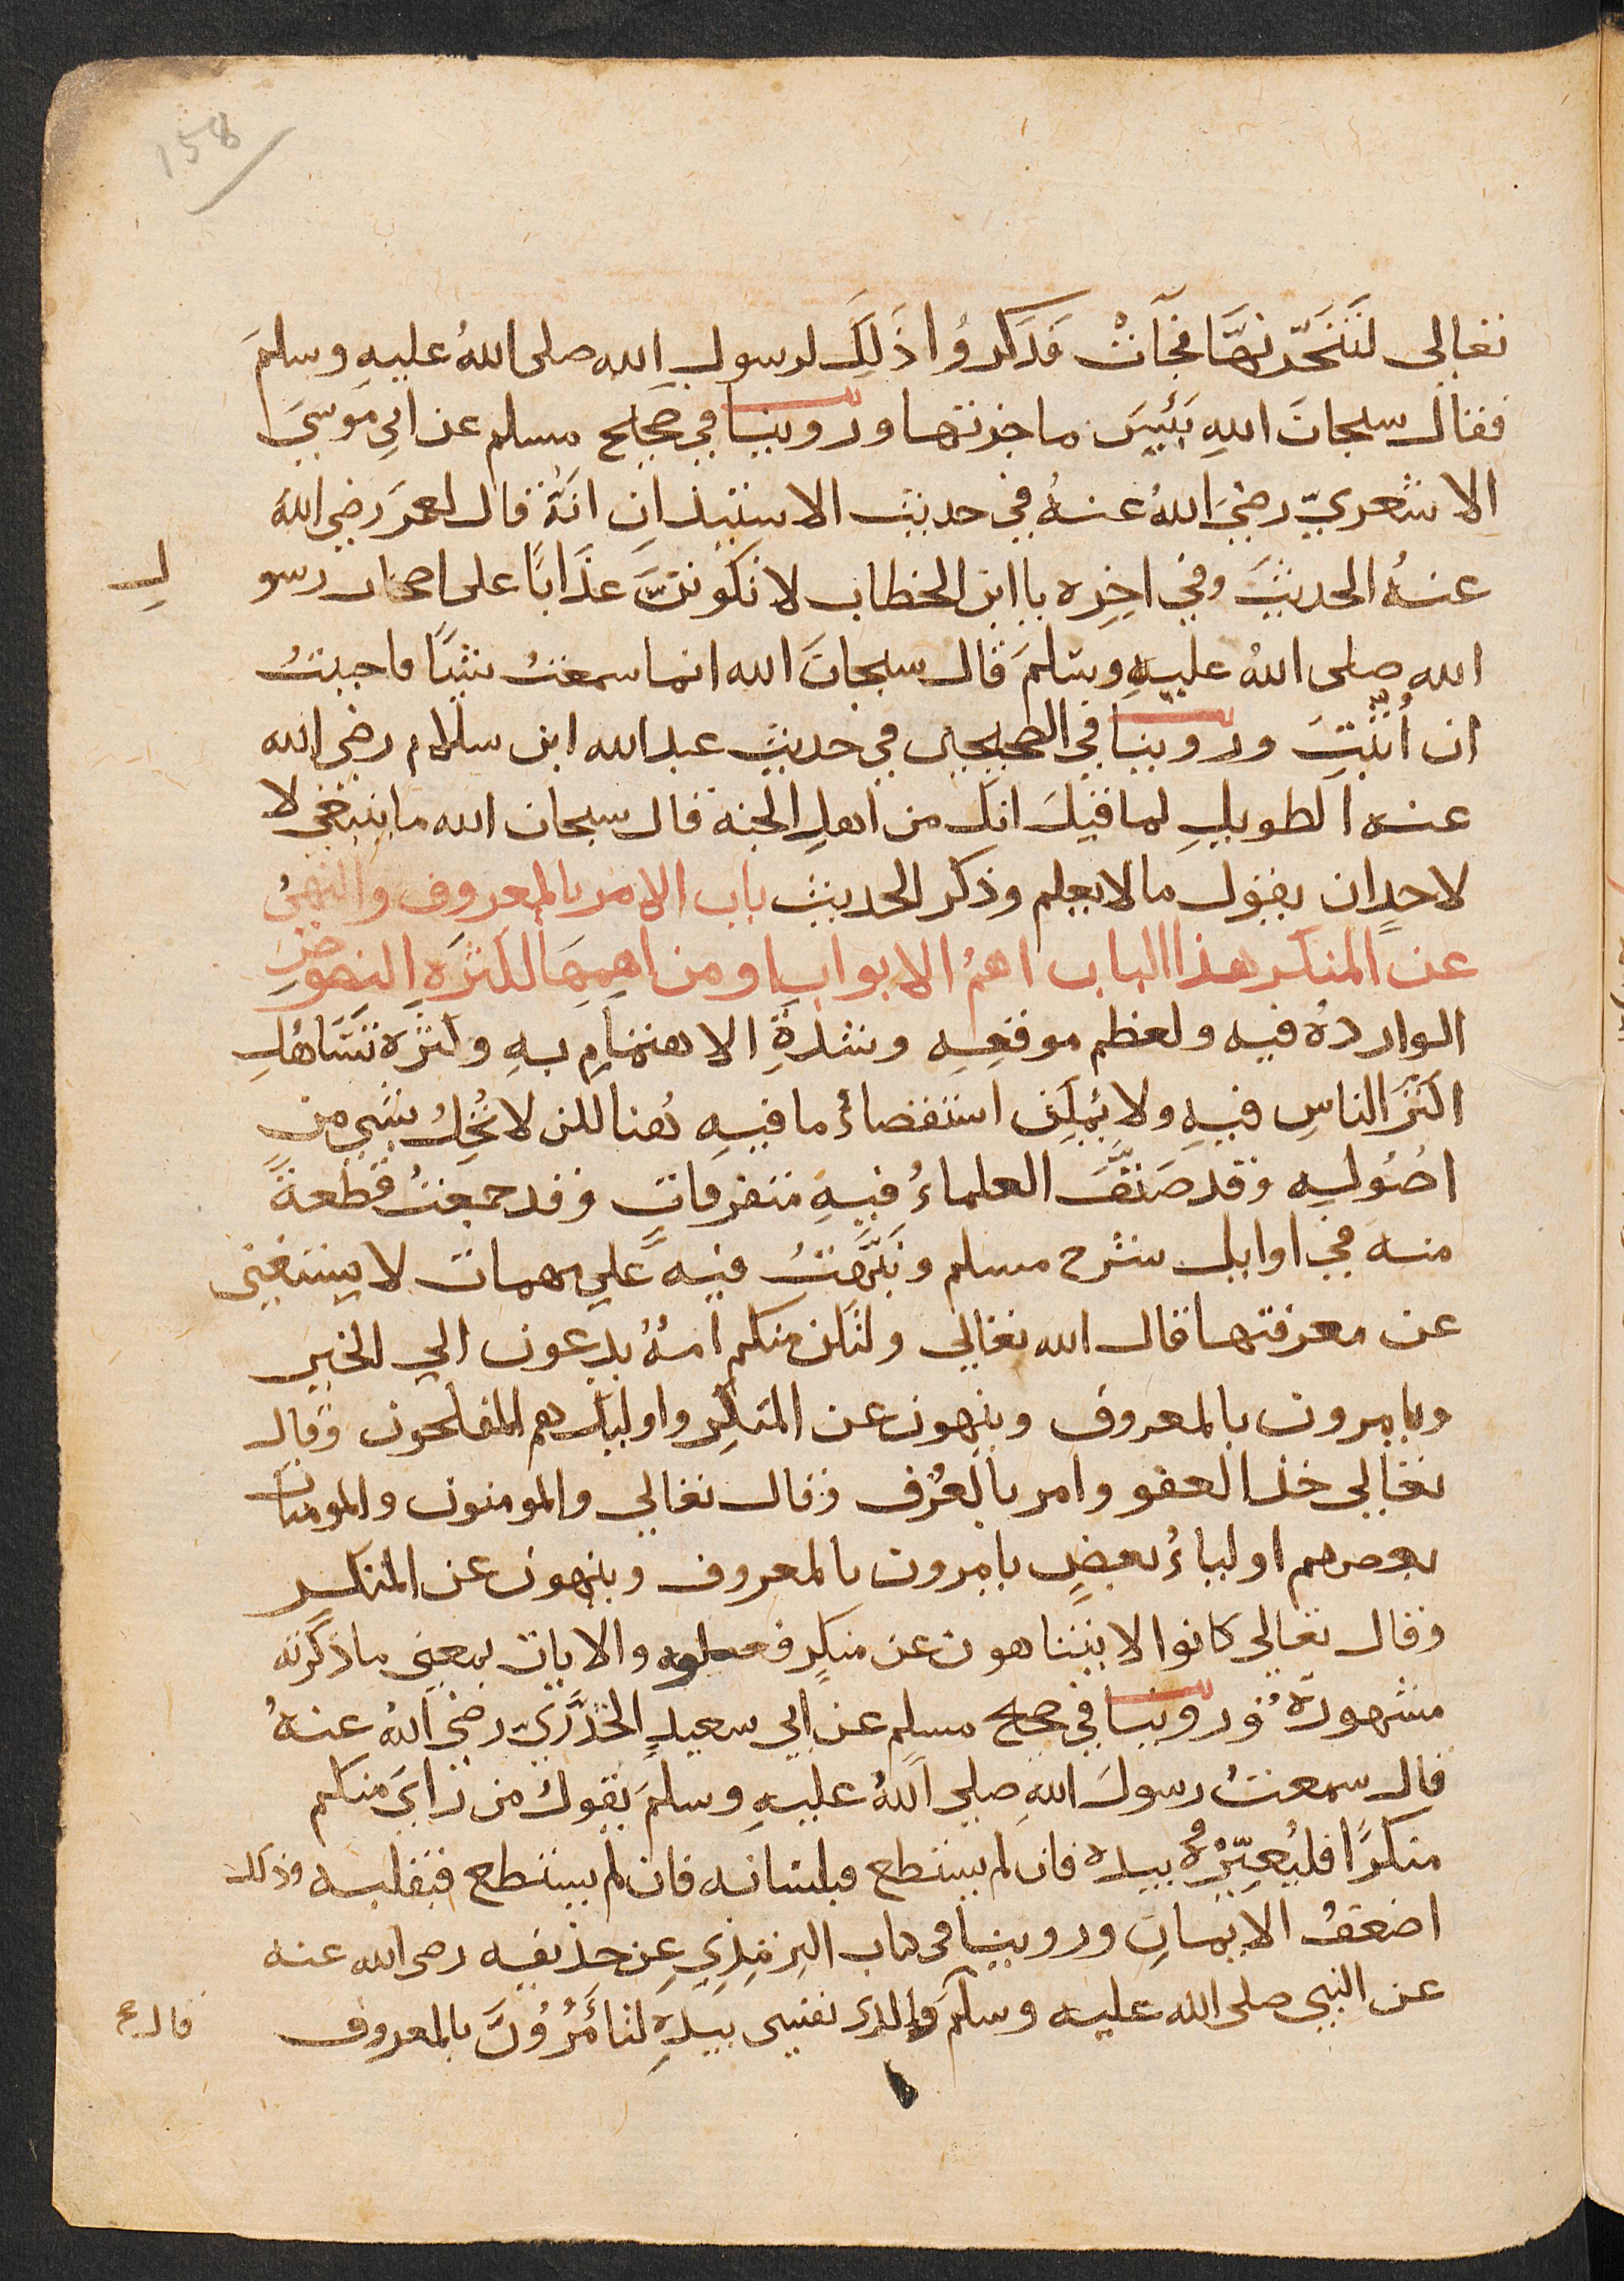 158
تعالى لَتَنْحَرَنَّهَا فجآتْ فَذَكَرُوا ذَلِكَ لرسولِ الله صلى اللهُ عليهِ وسلمَ
فقال سبحانَ اللهِ بَئيسَ ماجزتها وروينا في صحيح مسلم عن ابي مُوسيَ
الاشعريّ رضيَ اللهُ عنهُ في حديث الاستيذانِ انَّهُ قال لعمرَ رضي اللهُ
عنهُ الحديثَ وفي اخِرِه يا ابن الخطاب لا تكونَنَّ عذَابًا على اصحاب رسو
لِ
الله صلى اللهُ عليهِ وسلمَ قال سبحانَ الله انما سمعتُ شيًا فاحببتُ
ان أُثبّتَ وروينا في الصحيحين في حديثِ عبد الله ابن سلام رضي الله
عنه الطويلِ لما قيلَ انكَ من اهلِ الجنة قال سبحان الله ما ينبغي لا
لاحدٍ ان يقول ما لا يعلم وذكر الحديث باب الامر بالمعروف والنهيُ
عن المنكر هذا الباب اهمُ الابوابِ او من اهمِهَا لكثرَةِ النصوصِ
الواردهُ فيه ولعظم موقعِهِ وشدةِ الاهتمامِ بهِ وكثرَة تَسَاهُلِ
اكثرَ الناسِ فيهِ ولا يُمكِن استقصاءُ ما فيهِ هُنا لكن لا نُخِلُ بشيٍ من
اصُولِهِ وقد صَنَّفَ العلماءُ فيهِ متفرقاتٍ وقد جمعتُ قطعةً
منه في اوايل شرح مسلم ونَبَّهتُ فيهِ علي مهمات لا يستغني
عن معرفتها قال الله تعالي ولتكن منكم امهُ يدعون الي الخيرِ
ويامرون بالمعروف وينهون عن المنكرِ واوليك هم المفلحون وقال
تعالي خذ العفو وامر بالعُرْف وقال تعالي والمومنون والمومنات
بعضهم اولياءُ بعضٍ يامرون بالمعروف وينهون عن المنكر
وقال تعالي كانوا لا يتناهون عن منكرٍ فعلوه والايات بمعني ما ذكرته
مشهورةُ وروينا في صحيح مسلم عن ابي سعيدٍ الخدْريّ رضي اللهُ عنهُ
قال سمعتُ رسولَ اللهِ صلي اللهُ عليهِ وسلمَ يقولُ من رَايَ منكم
منكرًا فليُغيِّرْهُ بيده فان لم يستطع فبلسانه فان لم يستطع فبقلبه وذلك
اضعفُ الايمانِ وروينا في كتاب الترمذي عن حذيفه رضي الله عنه
عن النبي صلى الله عليه وسلمَ والذي نفسي بيدهِ لتاْمُرُوُنَّ بالمعروف
قال